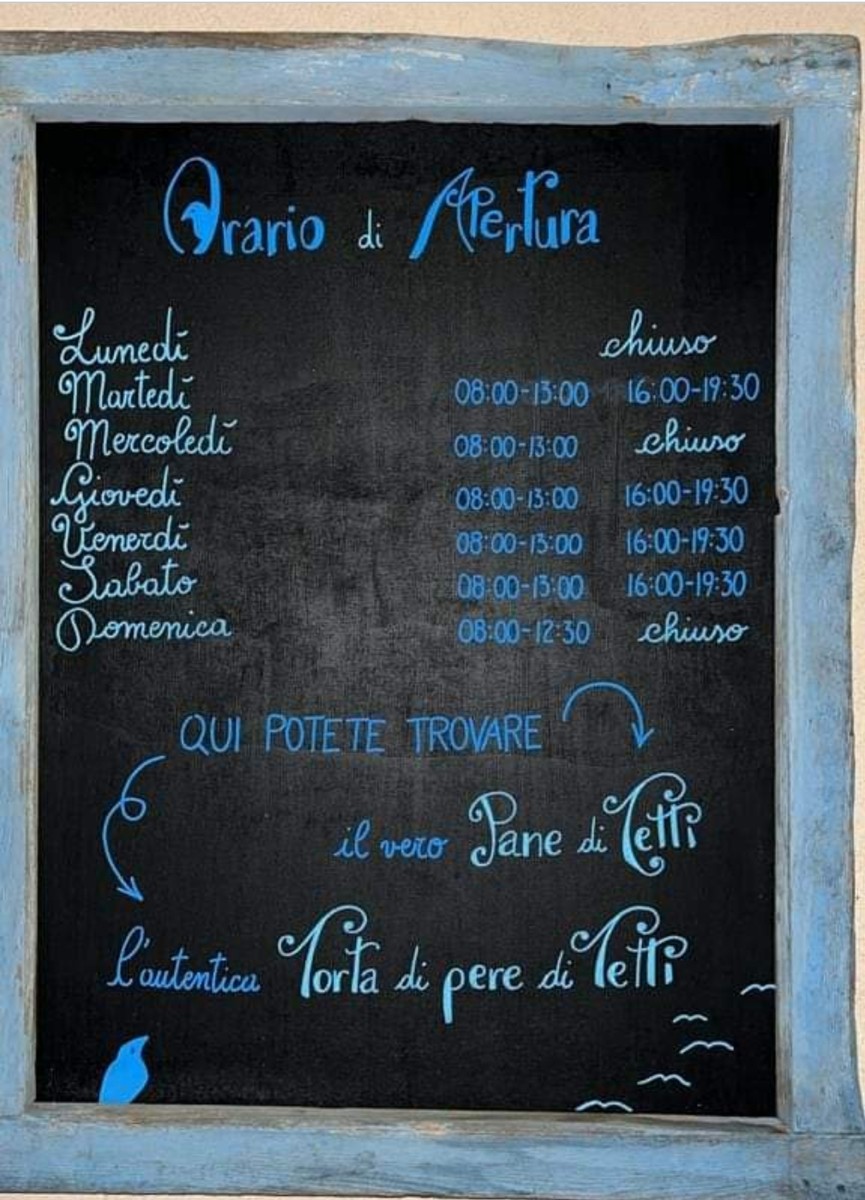 Orario di Apertura
Lunedì chiuso
Martedì 08:00-13:00 16:00-19:30
Mercoledì 08:00-13:00 chiuso
Giovedì 08:00-13:00 16:00-19:30
Venerdì 08:00-13:00 16:00-19:30
Sabato 08:00-13:00 16:00-19:30
Domenica 08:00-12:30 chiuso
QUI POTETE TROVARE
il vero Pane di Tetti
l'autentica Torta di pere di Tetti